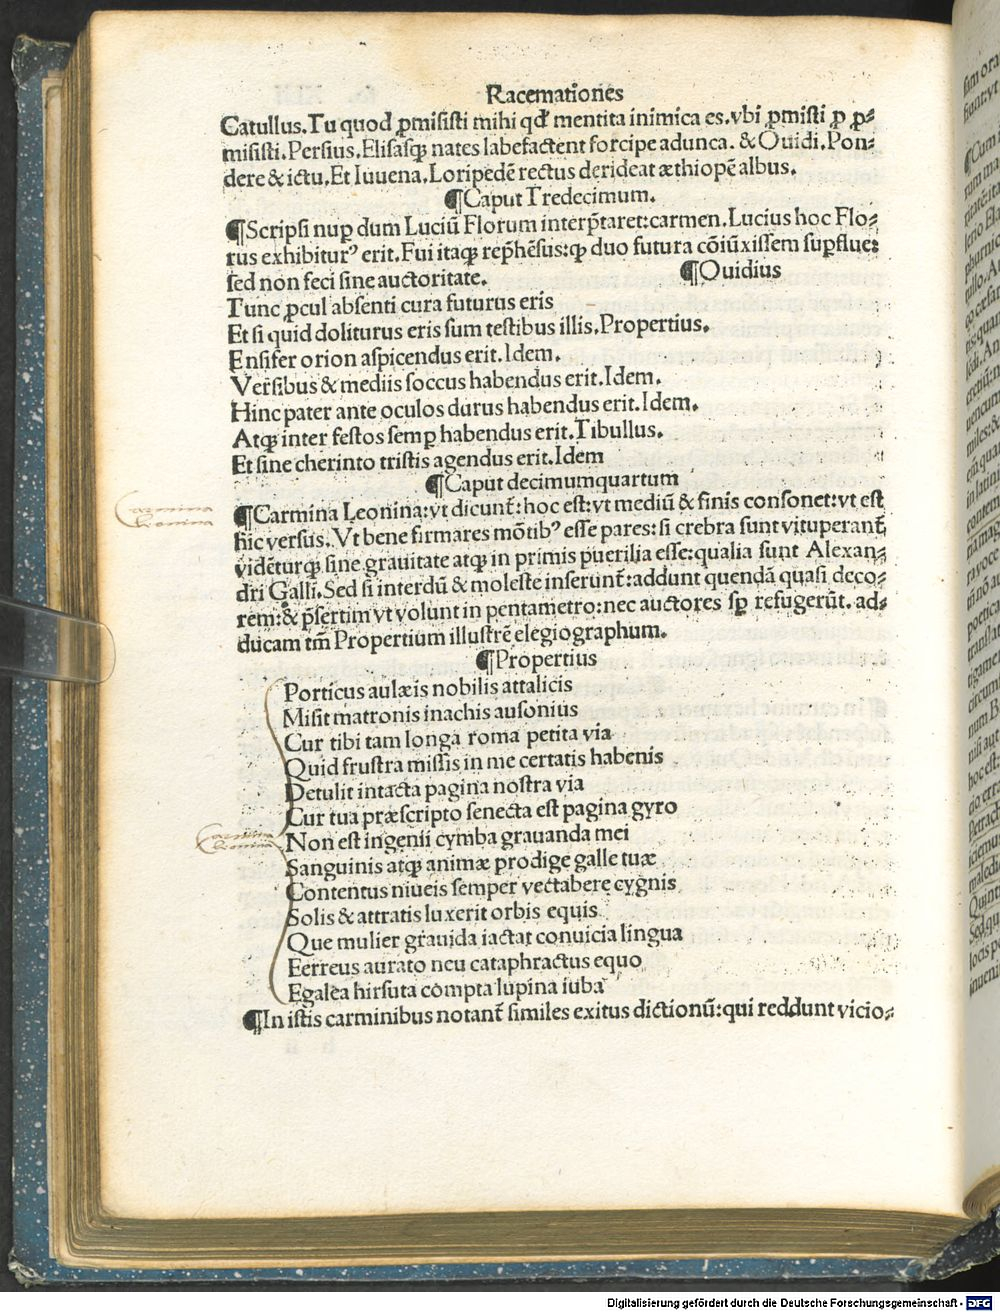 Racemationes
Catullus. Tu quod ꝓmisisti mihi qđ mentita inimica es. vbi ꝓmisti ꝓ ꝓ⸗
misisti. Persius. Elisasqꝫ nates labefactent forcipe adunca. & Ouidi. Pon⸗
dere & ictu. Et Iuuena. Loripedē rectus derideat æthiopē albus.
¶Caput Tredecimum.
¶Scripsi nuꝑ dum Luciū Florum interp̄taret: carmen. Lucius hoc Flo⸗
rus exhibiturꝰ erit. Fui itaqꝫ rep̄hēsus: qꝫ duo futura cōiūxissem suꝑflue:
sed non feci sine auctoritate.
¶Ouidius
Tunc ꝓcul absenti cura futurus eris
Et si quid doliturus eris sum testibus illis. Propertius.
Ensifer orion aspicendus erit. Idem.
Versibus & mediis soccus habendus erit. Idem.
Hinc pater ante oculos durus habendus erit. Idem.
Atqꝫ inter festos semꝑ habendus erit. Tibullus.
Et sine cherinto tristis agendus erit. Idem
¶Caput decimumquartum
Carmina
Leonina
¶Carmina Leonina: vt dicunt̄: hoc est: vt mediū & finis consonet: vt est
hic versus. Vt bene firmares mōtibꝰ esse pares: si crebra sunt vituperant̄
vidēturqꝫ sine grauitate atqꝫ in primis puerilia esse: qualia sunt Alexan⸗
dri Galli. Sed si interdū & moleste inserunt̄: addunt quendā quasi deco⸗
rem: & p̄sertim vt volunt in pentametro: nec auctores sꝑ refugerūt. ad⸗
ducam tm̄ Propertium illustrē elegiographum.
¶Propertius
Porticus aulæis nobilis attalicis
Misit matronis inachis ausonius
Cur tibi tam longa roma petita via
Quid frustra missis in me certatis habenis
Detulit intacta pagina nostra via
Cur tua præscripto senecta est pagina gyro
Carmina
Leonina
Non est ingenii cymba grauanda mei
Sanguinis atqꝫ animæ prodige galle tuæ
Contentus niueis semper vectabere cygnis
Solis & attratis luxerit orbis equis
Que mulier grauida iactat conuicia lingua
Eerreus aurato neu cataphractus equo
Egalea hirsuta compta lupina iuba
¶In istis carminibus notant̄ similes exitus dictionū: qui reddunt vicio⸗
Digitalisierung gefördert durch die Deutsche Forschungsgemeinschaft - DFG